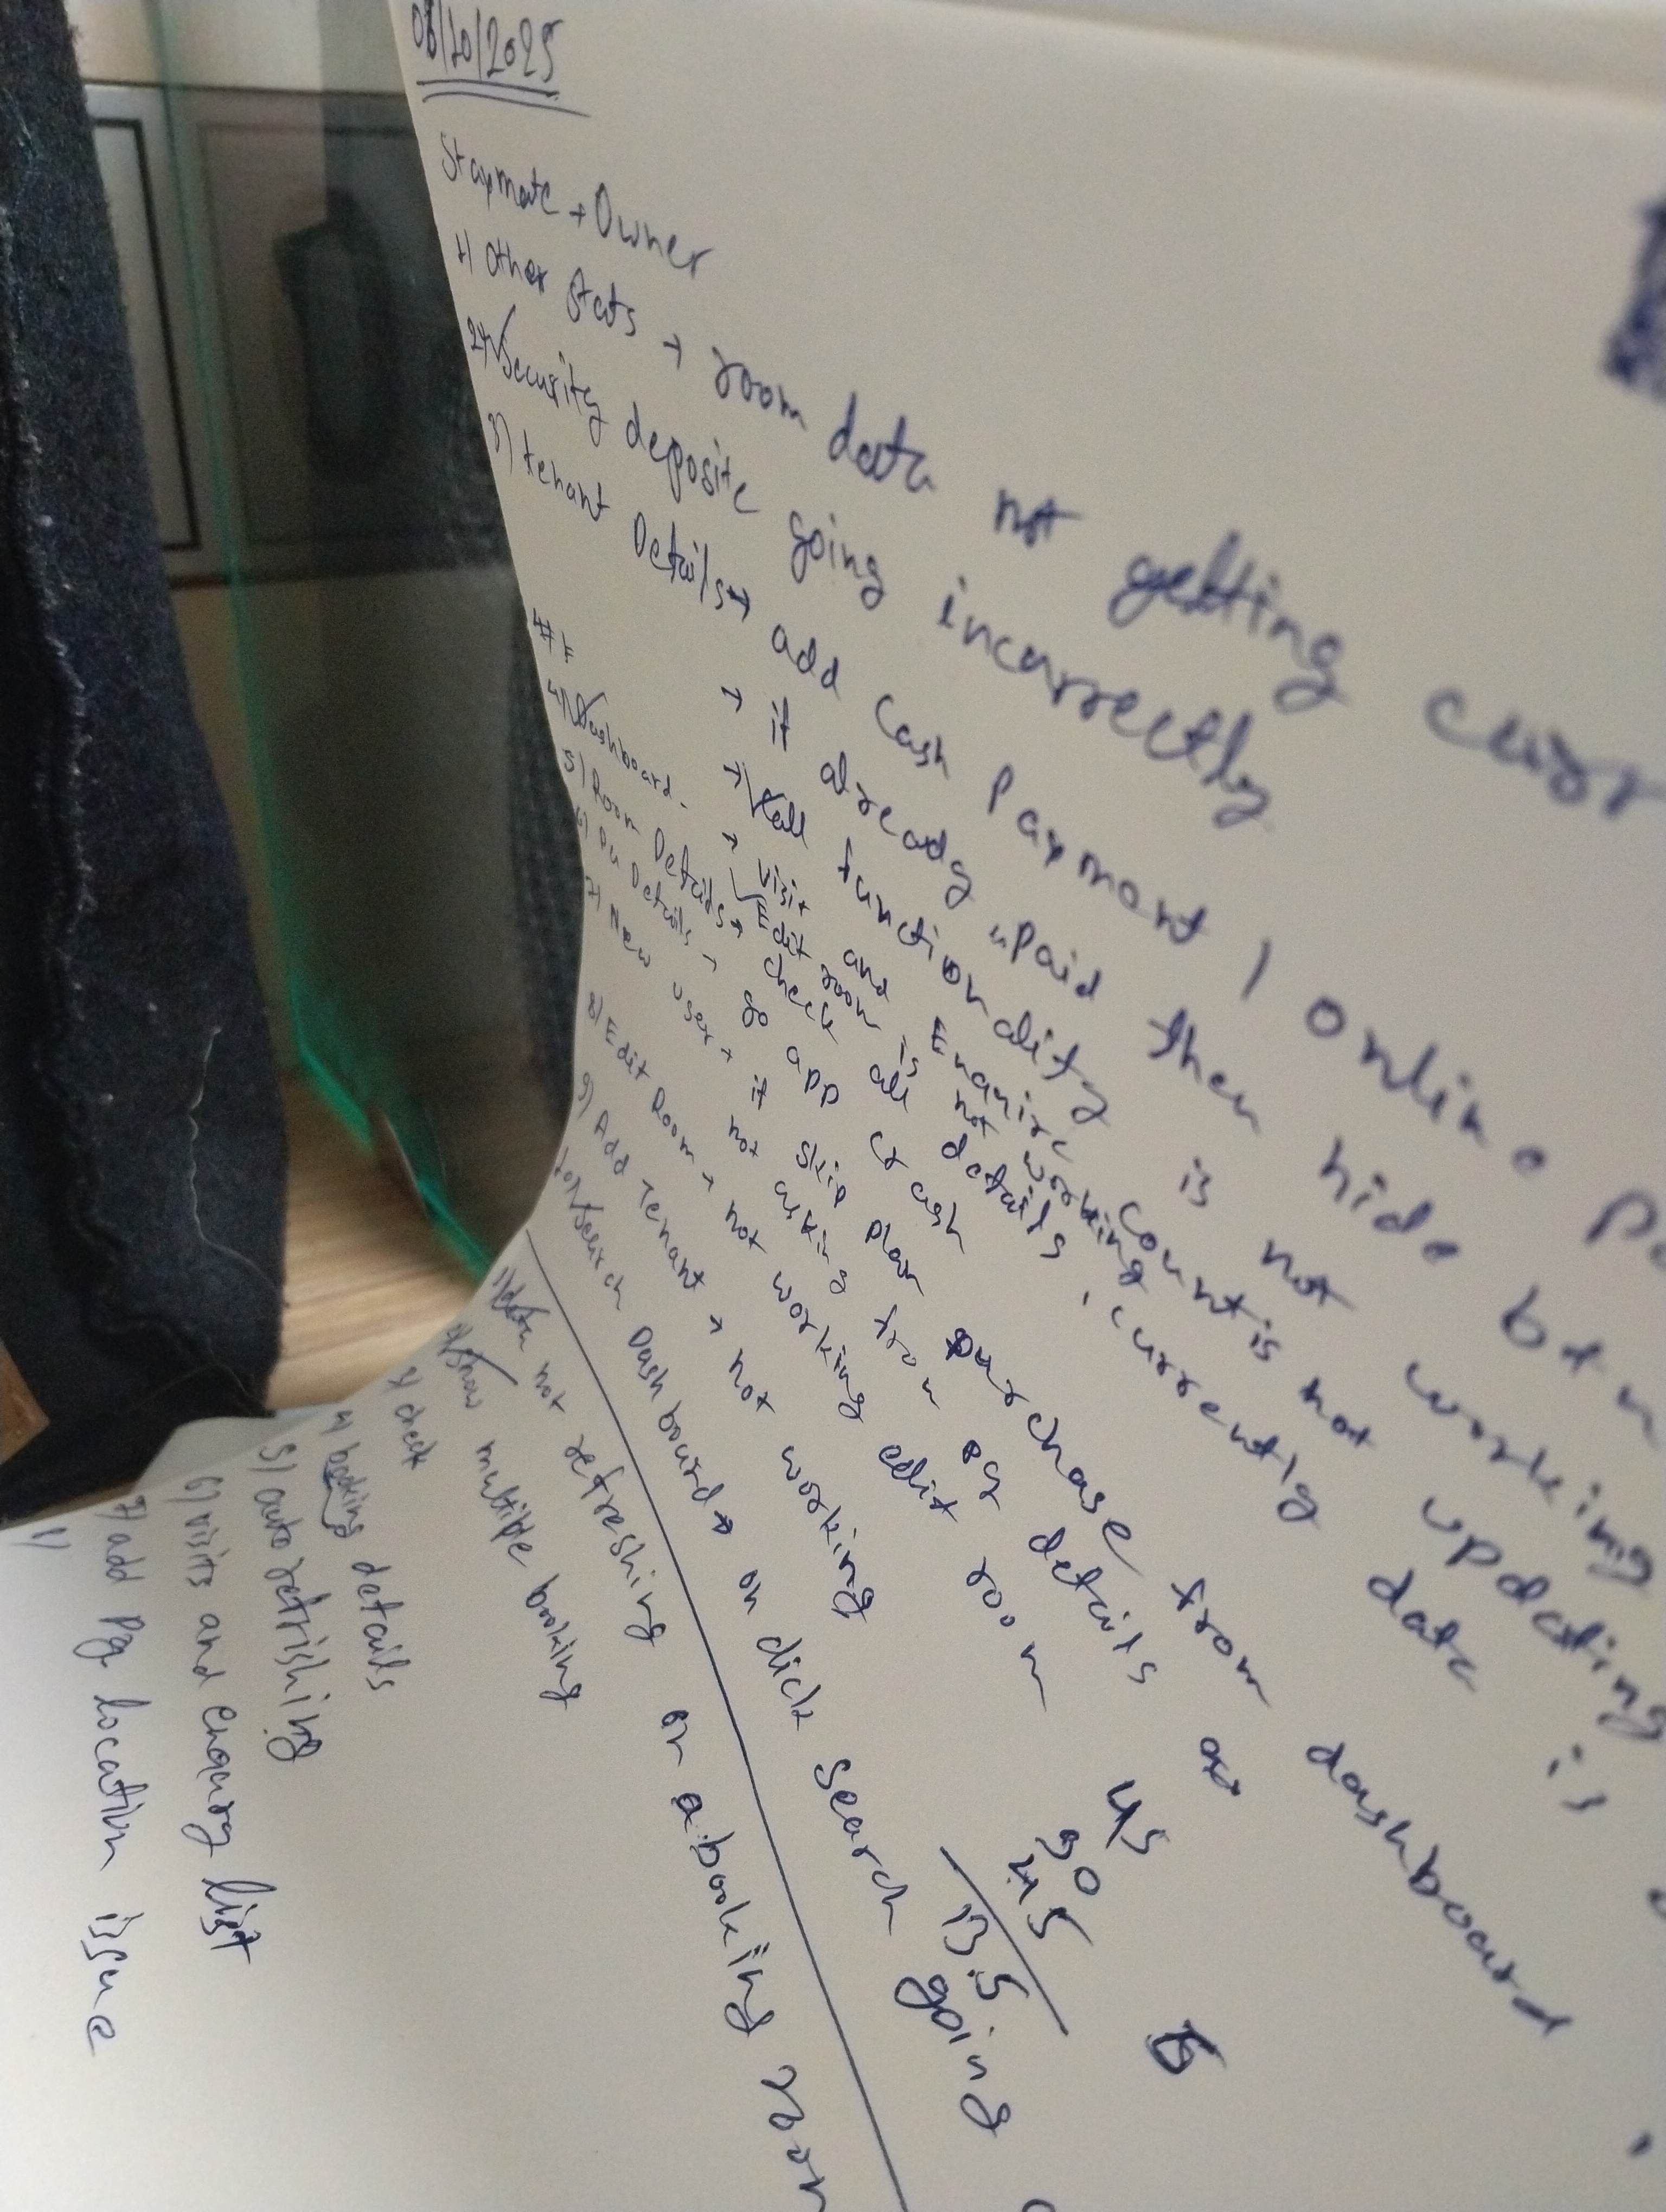 08/10/2025
Staymate → Owner
1) Other Stats → room data not getting
2) Security deposite going incorrectly
3) tenant Details → add cash Payment / online
→ if already upaid then hide btn
→ Call functionality is not working
4) Dashboard. → visit and Enquire count is not updating
→ Edit room is not working
5) Room Details → check all details, currently data is
6) PG Details → go app crash
7) New user → if not skip plan purchase from dashboard
not asking for pg details
8) Edit Room → not working edit room
9) Add Tenant → not working
10) Search Dashboard → on click search going
45
90
45
13.5
1) data not refreshing on a booking room
2) show multiple booking
3) check
4) booking details
5) auto refrishing
6) visits and enqury list
7) add Pg location issue